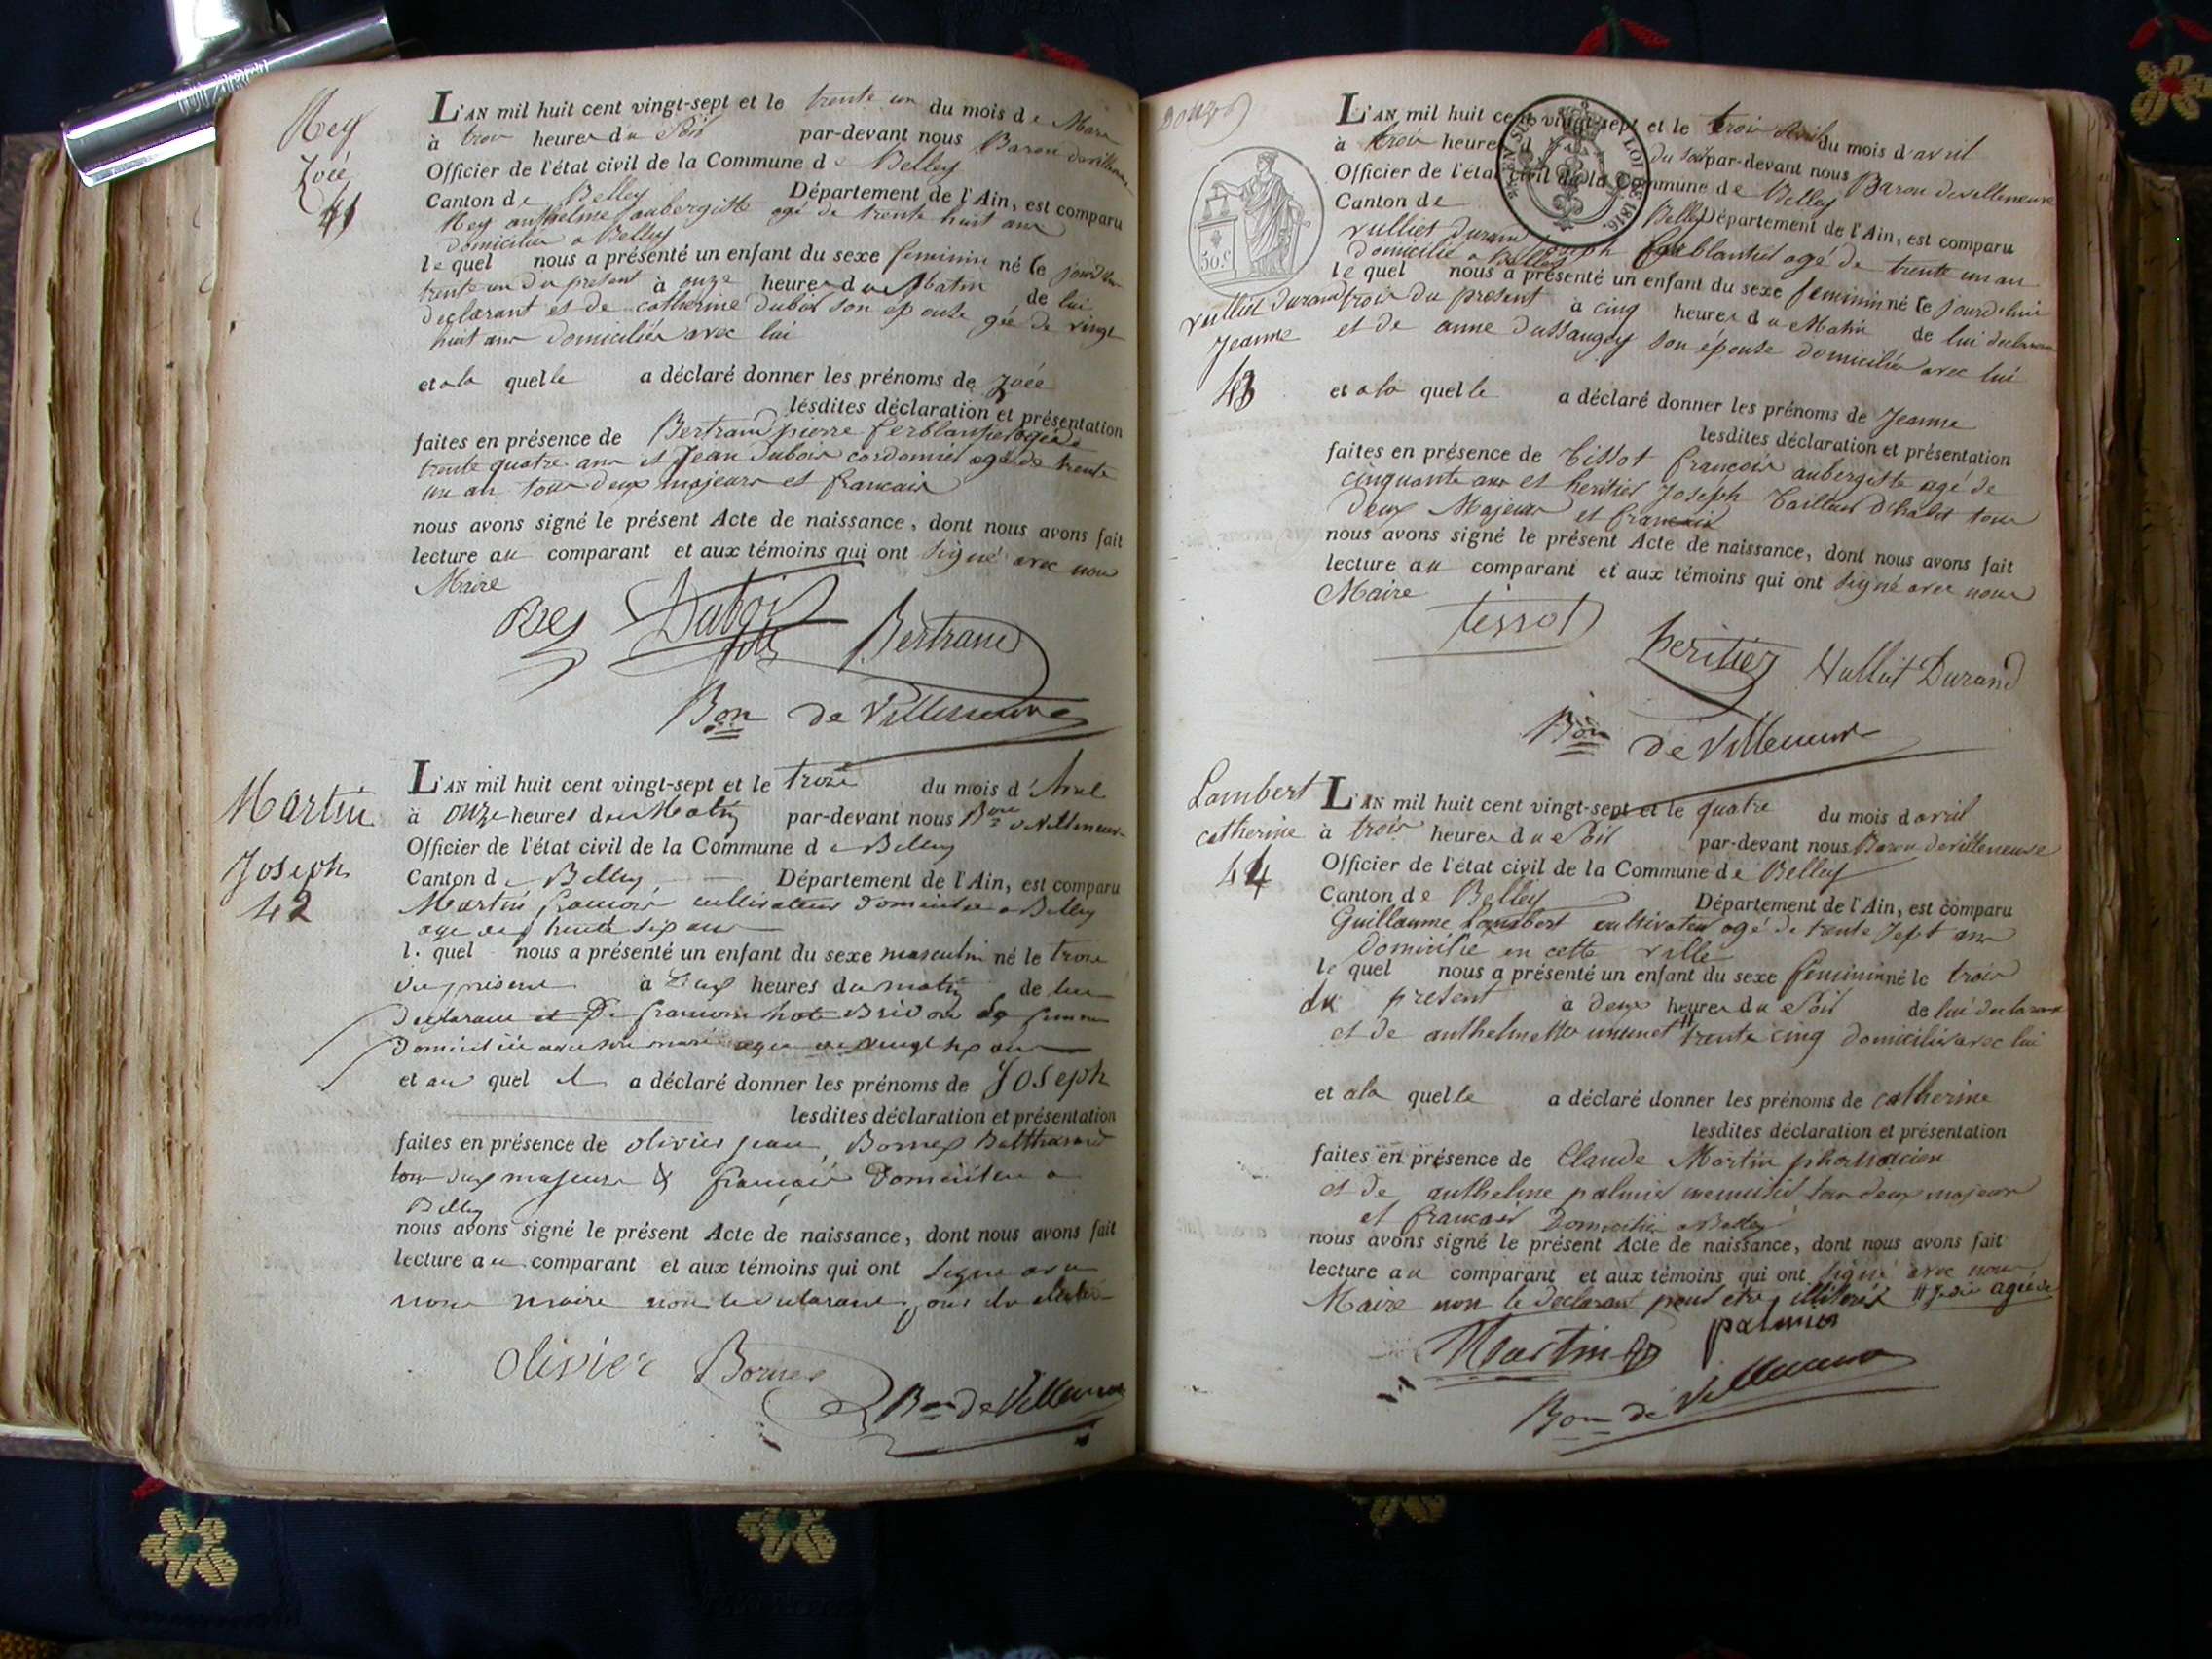 Rey
Zoée
41
L'AN mil huit cent vingt-sept et le trente un du mois de Mars
à trois heures du Soir par-devant nous Baron devilleneuve
Officier de l'état civil de la Commune de Belley
Canton de Belley Département de l'Ain, est comparu
Rey anthelme aubergiste agé de trente huit ans
domicilié a Belley
lequel nous a présenté un enfant du sexe feminin né le jourdhui
trente un du présent à onze heures du Matin de lui
declarant et de catherine Dubois son epouse gée de vingt
huit ans domiciliée avec lui
et a la quelle a déclaré donner les prénoms de Zoée
lesdites déclaration et présentation
faites en présence de Bertrand pierre ferblantier agé de
trente quatre ans et Jean Dubois cordonnier agé de trente
un an tous deux majeurs et francais
nous avons signé le présent Acte de naissance, dont nous avons fait
lecture au comparant et aux témoins qui ont signé avec nous
Maire
Rey Dubois fils Bertrand
Bon de Villeneuve
Martin
Joseph
42
L'AN mil huit cent vingt-sept et le trois du mois d'Avril
à onze heures du Matin par-devant nous Bon de Villeneuve
Officier de l'état civil de la Commune de Belley
Canton de Belley Département de l'Ain, est comparu
Martin francois cultivateur domicilié a Belley
age de trente six ans
lequel nous a présenté un enfant du sexe masculin né le trois
du présent à deux heures du matin de lui
declarant et De francoise Brivon sa femme
domiciliée avec son mari agée de vingt six ans
et au quel il a déclaré donner les prénoms de Joseph
lesdites déclaration et présentation
faites en présence de olivier jean, Bornex Balthazard
tous deux majeurs & français Domiciliés a
Belley
nous avons signé le présent Acte de naissance, dont nous avons fait
lecture au comparant et aux témoins qui ont signé avec
nous maire non le declarant
olivier Bornex
Bon de Villeneuve
Douze
EN SUS LOI DE 1816.
50.c
Vulliet Durand
Jeanne
43
L'AN mil huit cent vingt-sept et le trois avril du mois d'avril
à trois heures du soir par-devant nous Baron devilleneuve
Officier de l'état civil de la Commune de Belley
Canton de Belley Département de l'Ain, est comparu
Vulliet durand joseph ferblantier agé de trente un an
domicilié a Belley
lequel nous a présenté un enfant du sexe feminin né le jourdhui
trois du présent à cinq heures du Matin de lui declarant
et de anne dussaugey son épouse domiciliée avec lui
et a la quelle a déclaré donner les prénoms de Jeanne
lesdites déclaration et présentation
faites en présence de Tissot françois aubergiste agé de
cinquante ans et heritier Joseph Tailleur dhabit tous
deux Majeurs et francais
nous avons signé le présent Acte de naissance, dont nous avons fait
lecture au comparant et aux témoins qui ont signé avec nous
Maire
tissot
heritier Vulliet Durand
Bon de Villeneuve
Lambert
catherine
44
L'AN mil huit cent vingt-sept et le quatre du mois d avril
à trois heures du Soir par-devant nous Baron devilleneuve
Officier de l'état civil de la Commune de Belley
Canton de Belley Département de l'Ain, est comparu
Guillaume Lambert cultivateur agé de trente sept ans
domicilié en cette ville
lequel nous a présenté un enfant du sexe feminin né le trois
du présent à deux heures du Soir de lui declarant
et de anthelmette trente cinq domiciliée avec lui
et a la quelle a déclaré donner les prénoms de catherine
lesdites déclaration et présentation
faites en présence de Claude Martin pharmacien
et de anthelme palmier menuisier tous deux majeurs
et francais Domiciliés a Belley
nous avons signé le présent Acte de naissance, dont nous avons fait
lecture au comparant et aux témoins qui ont signé avec nous
Maire non le declarant pour etre illiteré agée de
Martin palmier
Bon de Villeneuve